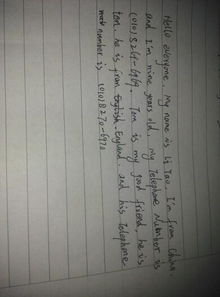 Hello everyone. My name is Li Tao. I'm from China.
and I'm nine years old. My Telephone Number is
(010)8269-6969. Tom is my good friend, he is
ten. he is from English. England. and his Telephone
number is (010)8270-6970